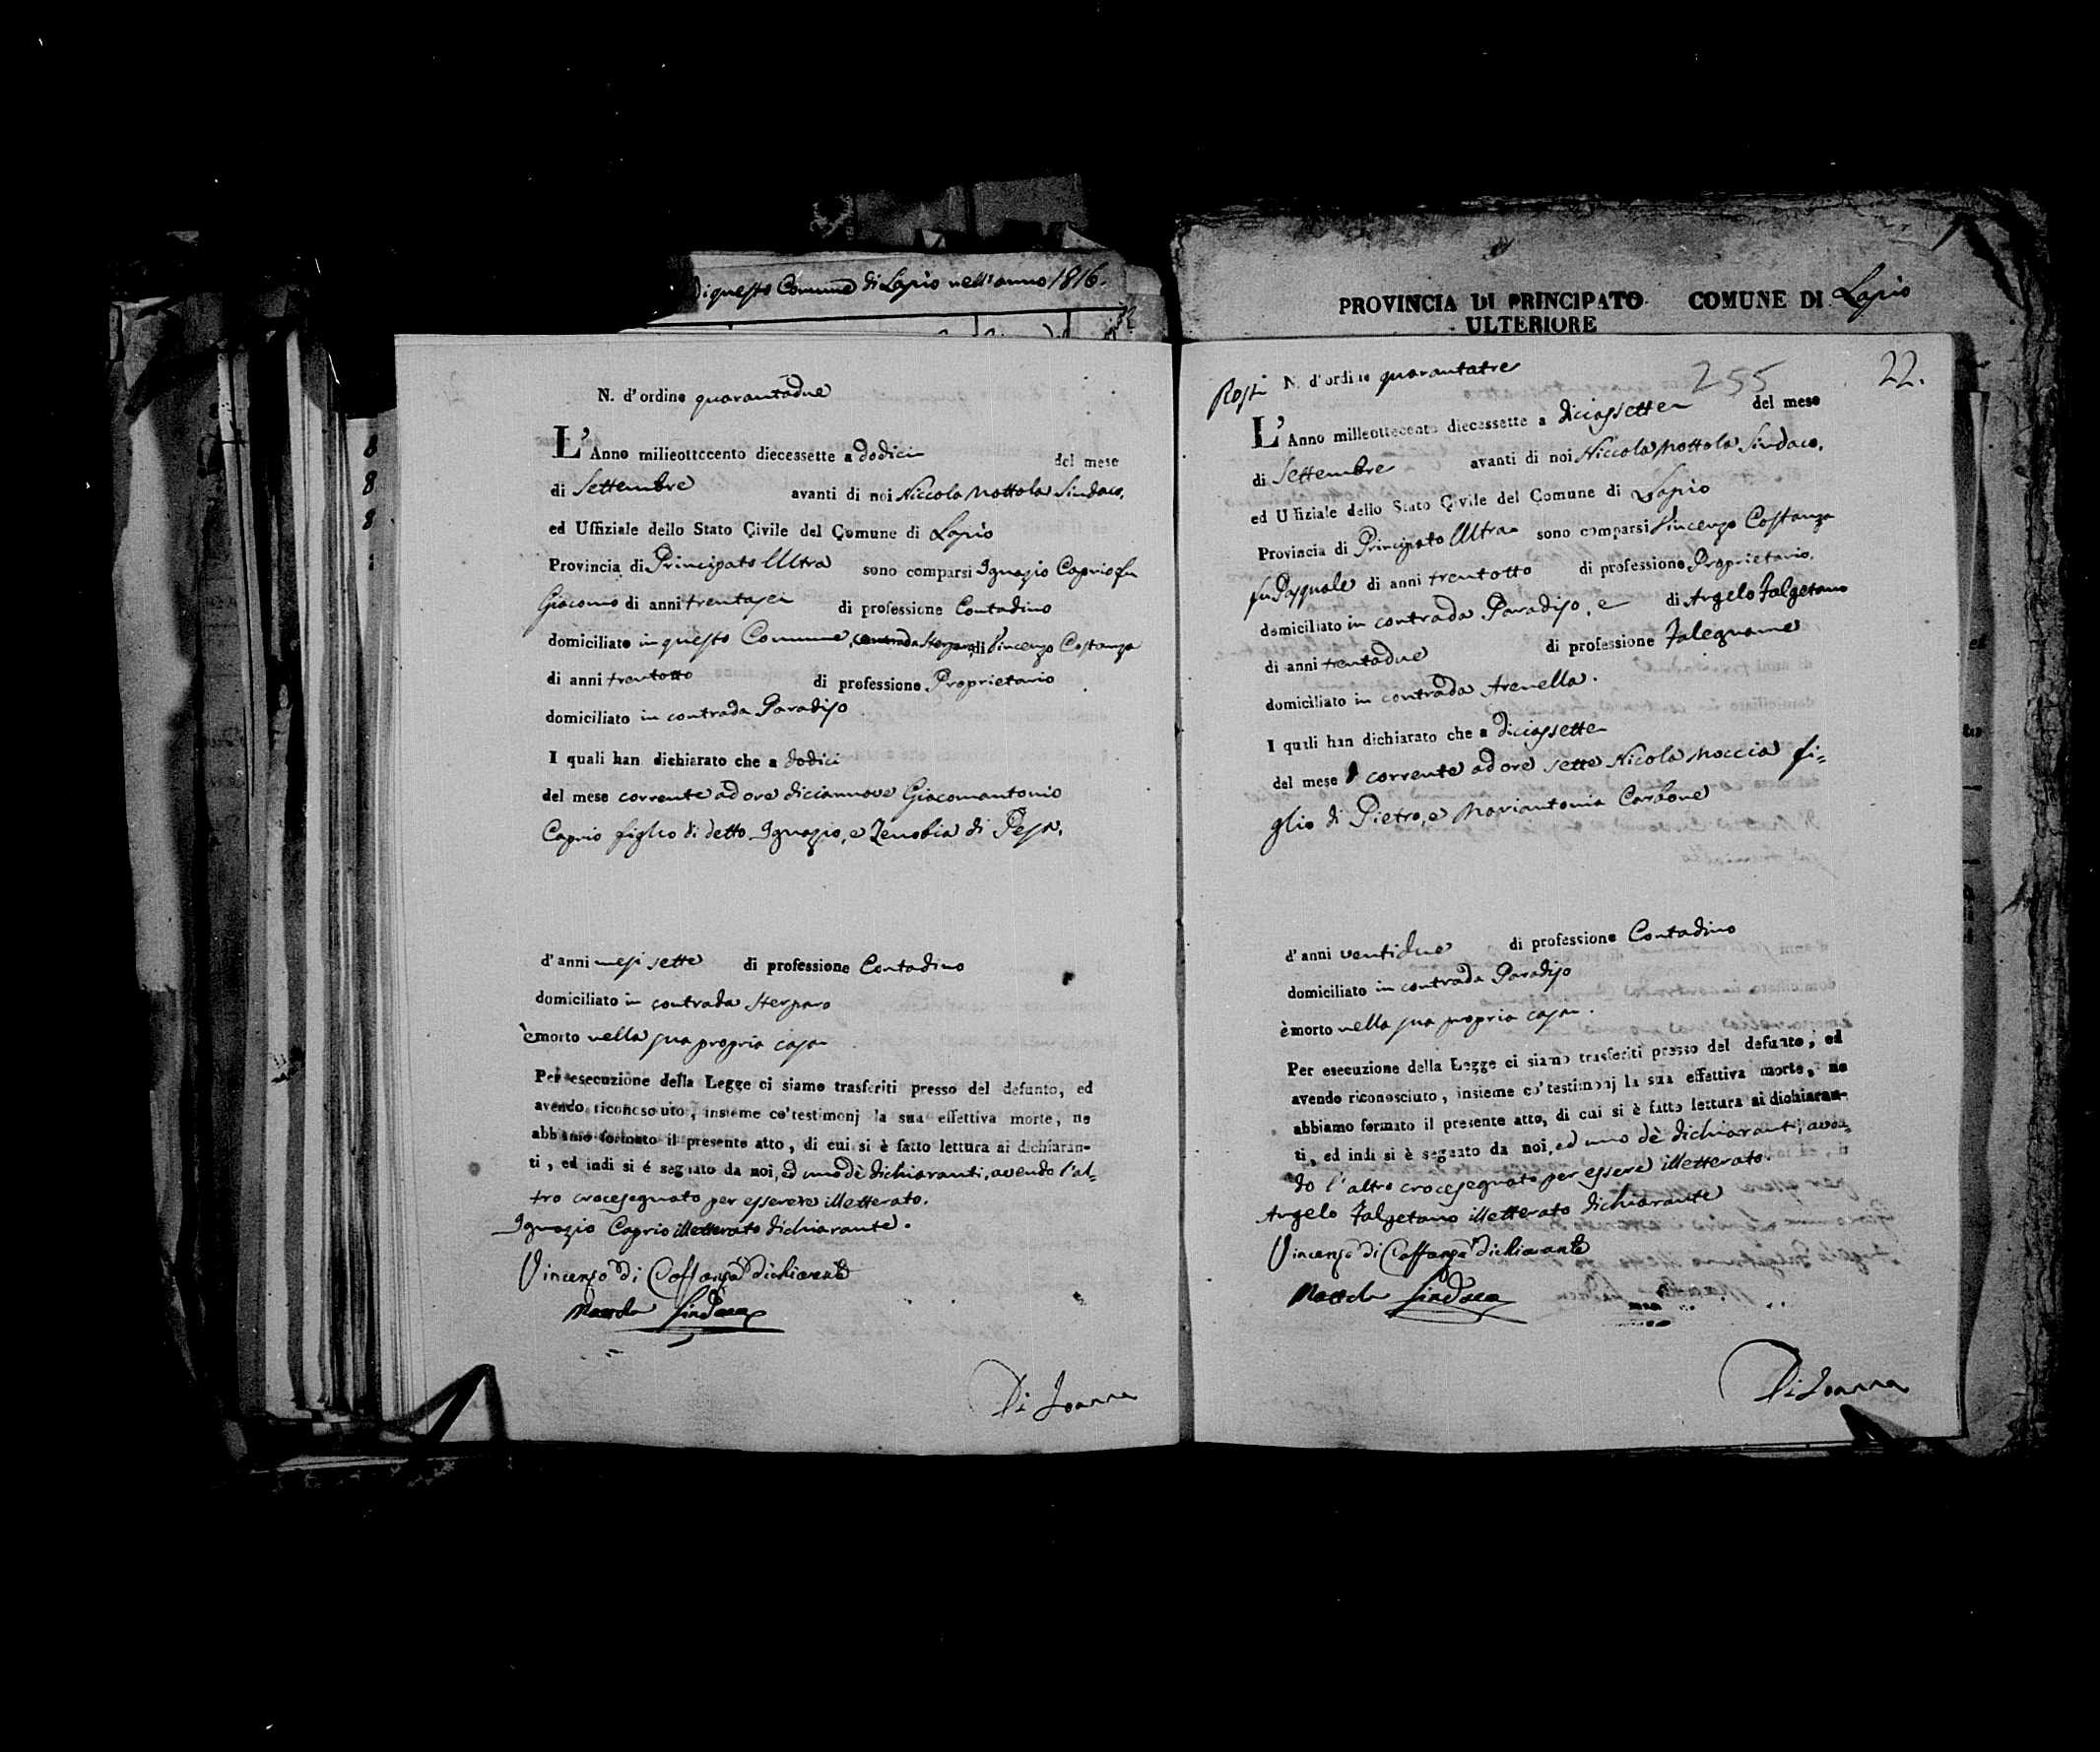 di questo Comune di Lapio nell'anno 1816.
PROVINCIA DI PRINCIPATO COMUNE DI Lapio
ULTERIORE
8
8
8
N. d'ordine quarantadue
L'Anno milleottocento diecessette a dodici del mese
di Settembre avanti di noi Niccola Mottola Sindaco,
ed Uffiziale dello Stato Civile del Comune di Lapio
Provincia di Principato Ultra sono comparsi Ignazio Caprio fu
Giacomo di anni trentasei di professione Contadino
domiciliato in questo Comune, contrada Sterparo, di Vincenzo Costanza
di anni trentotto di professione Proprietario
domiciliato in contrada Paradiso
I quali han dichiarato che a dodici
del mese corrente ad ore diciannove Giacomantonio
Caprio figlio di detto Ignazio, e Zenobia di Pesa,
d'anni mesi sette di professione Contadino
domiciliato in contrada Sterparo
è morto nella sua propria casa
Per esecuzione della Legge ci siamo trasferiti presso del defunto, ed
avendo riconosciuto, insieme co' testimonj la sua effettiva morte, ne
abbiamo formato il presente atto, di cui si è fatto lettura ai dichiaran-
ti, ed indi si é segnato da noi, ed uno dè dichiaranti, avendo l'al-
tro crocesegnato per essere illetterato.
Ignazio Caprio illetterato dichiarante.
Vincenzo di Costanza dichiarante
Mottola Sindaco
Di Ioanna
255 22.
N. d'ordine quarantatre
L'Anno milleottocento diecessette a diciassette del mese
di Settembre avanti di noi Niccola Mottola Sindaco,
ed Uffiziale dello Stato Civile del Comune di Lapio
Provincia di Principato Ultra sono comparsi Vincenzo Costanza
fu Pasquale di anni trentotto di professione Proprietario,
domiciliato in contrada Paradiso, e di Angelo Falgetano
di anni trentadue di professione Falegname
domiciliato in contrada Arenella.
I quali han dichiarato che a diciassette
del mese corrente ad ore sette Nicola Moccia fi=
glio di Pietro, e Mariantonia Carbone
d'anni ventidue di professione Contadino
domiciliato in contrada Paradiso
è morto nella sua propria casa.
Per esecuzione della Legge ci siamo trasferiti presso del defunto, ed
avendo riconosciuto, insieme co' testimonj la sua effettiva morte, ne
abbiamo formato il presente atto, di cui si è fatto lettura ai dichiaran-
ti, ed indi si è segnato da noi, ed uno dè dichiaranti, aven-
do l'altro crocesegnato per essere illetterato.
Angelo Falgetano illetterato dichiarante
Vincenzo di Costanza dichiarante
Mottola Sindaco
Di Ioanna